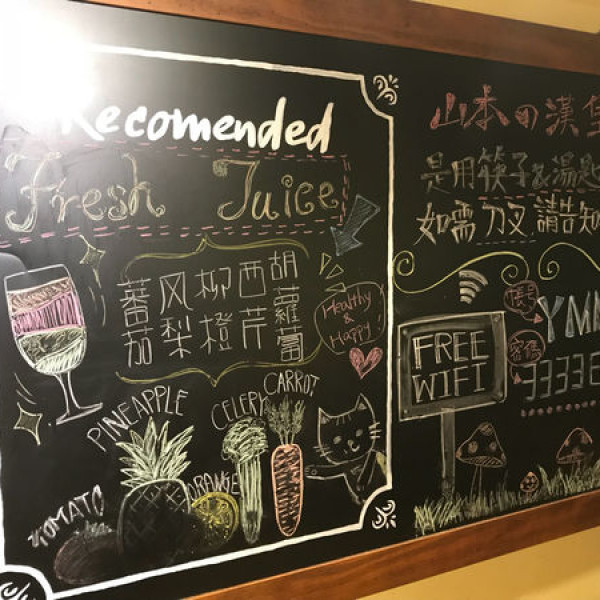 Recomended
Fresh Juice
胡蘿蔔
西芹
柳橙
风梨
蕃茄
Healthy
&
Happy!
PINEAPPLE
CELERY
CARROT
ORANGE
TOMATO
山本の漢堡
是用筷子&湯匙
如需刀叉請告知
FREE
WIFI
帳号
YMM
密碼
3333